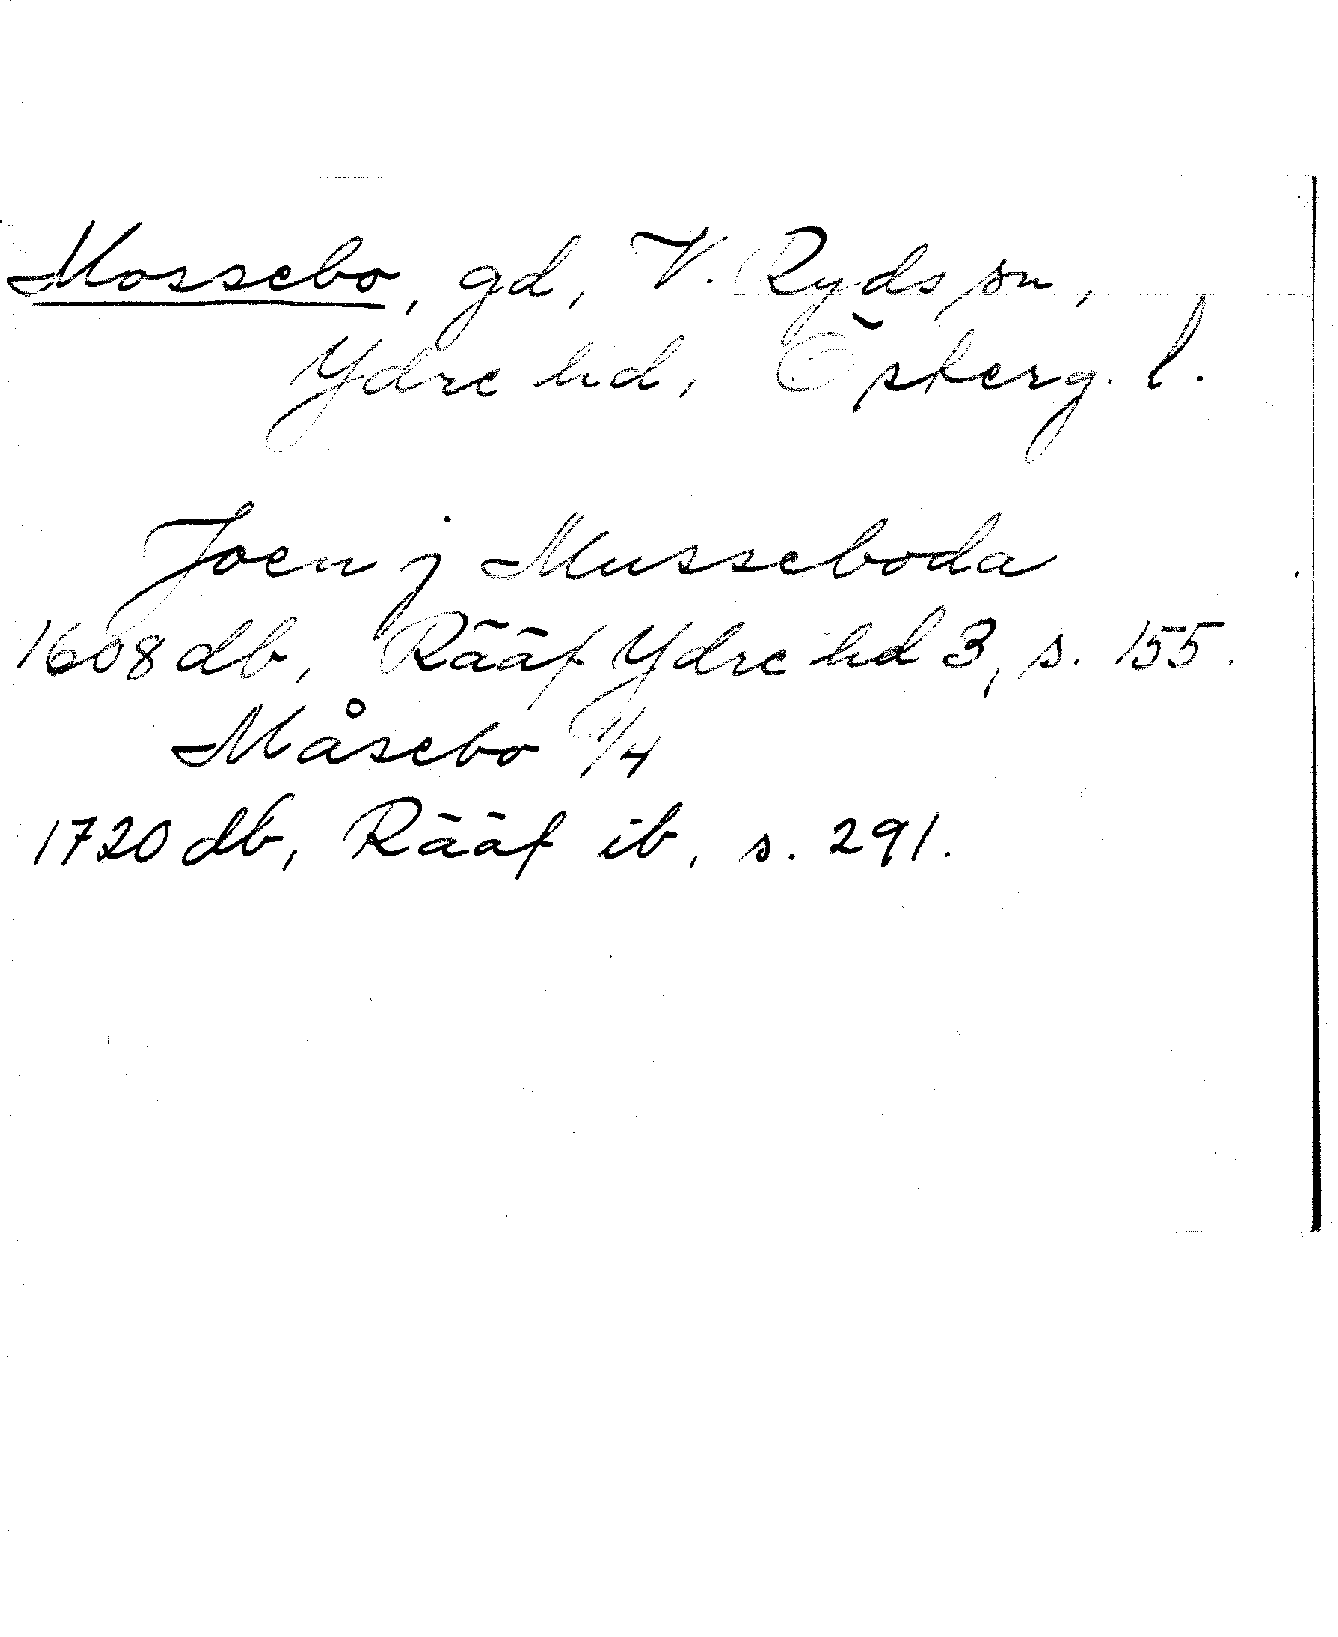 Mossebo, gd, V. Ryds sn,
Ydre hd, Österg. l.
Joen j Musseboda
1608 db, Rääf Ydre hd 3, s. 155.
Måsebo 1/4
1720 db, Rääf ib, s. 291.